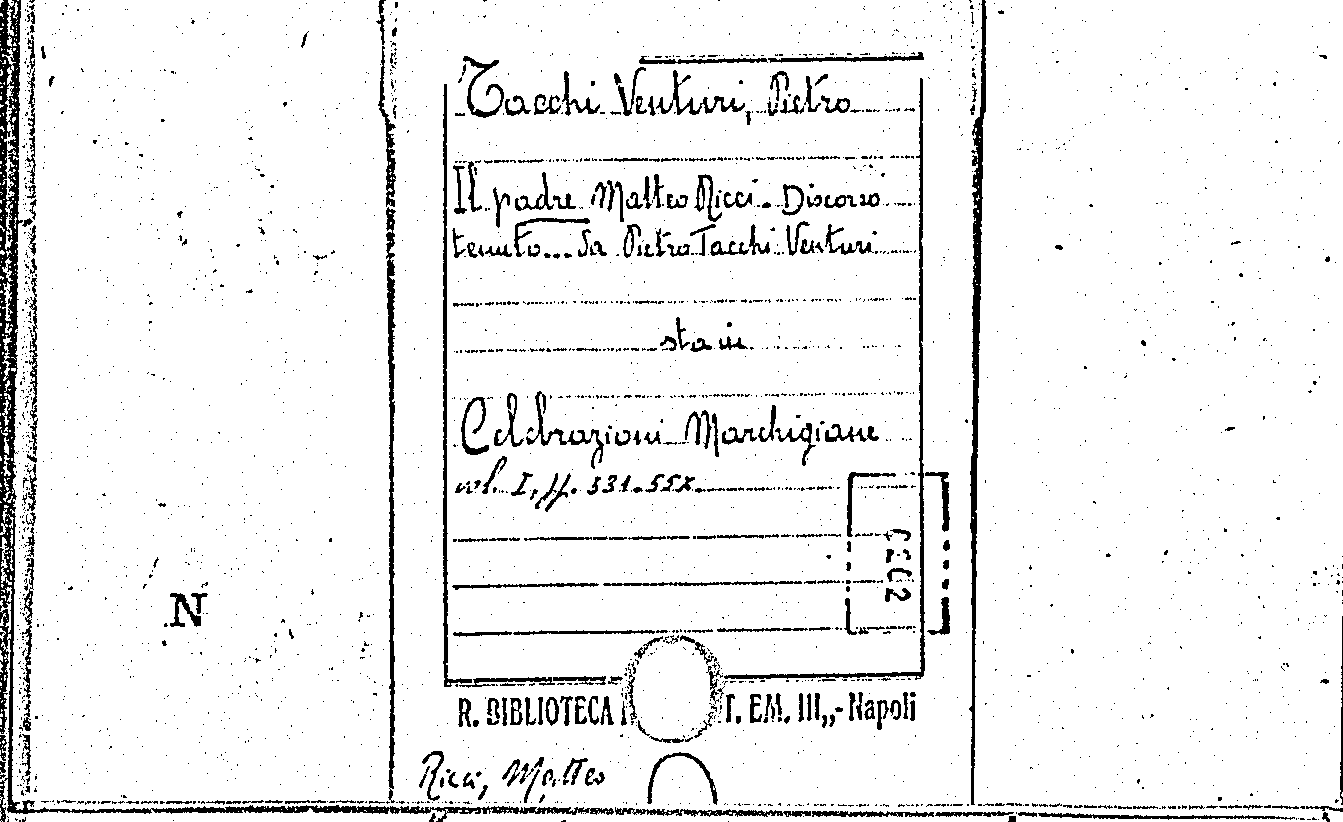 Tacchi Venturi, Pietro
Il padre Matteo Ricci. Discorso
tenuto... da Pietro Tacchi Venturi
sta in
Celebrazioni Marchigiane
vol. I, pp. 531.557.
N
R. BIBLIOTECA T. EM. III,,-Napoli
Ricci, Matteo